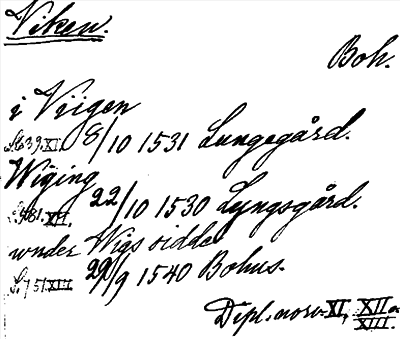 Viken.
Boh.
i Viigen
S. 639. XI. 8/10 1531 Lungegård.
Wiging
S. 481. XII. 22/10 1530 Lyngsgård.
wnder Wigs sidde
S. 751. XIII. 29/9 1540 Bohus.
Dipl. norv. XI, XII o. XIII.